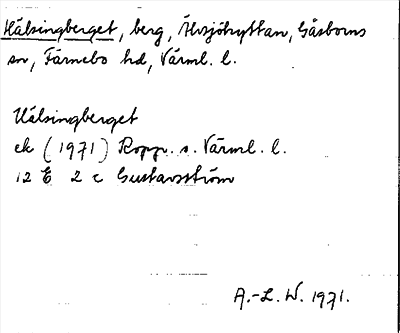 Hälsingberget, berg, Älvsjöhyttan, Gåsborns
sn, Färnebo hd, Värml. l.
Hälsingberget
ek (1971) Ropp. s. Värml. l.
12 E 2 c Gustavsström
A.-L. W. 1971.